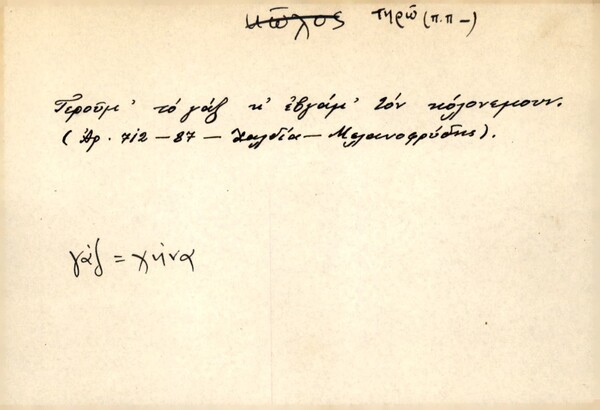 κῶλος τηρῶ (π.π –)
Τεροῦμ' τό γάζ κ' ἐβγάμ' τόν κόλονεμουν.
(Ἀρ. 712 – 87 – Χαλδία – Μελανοφρύδης).
γάζ = χήνα